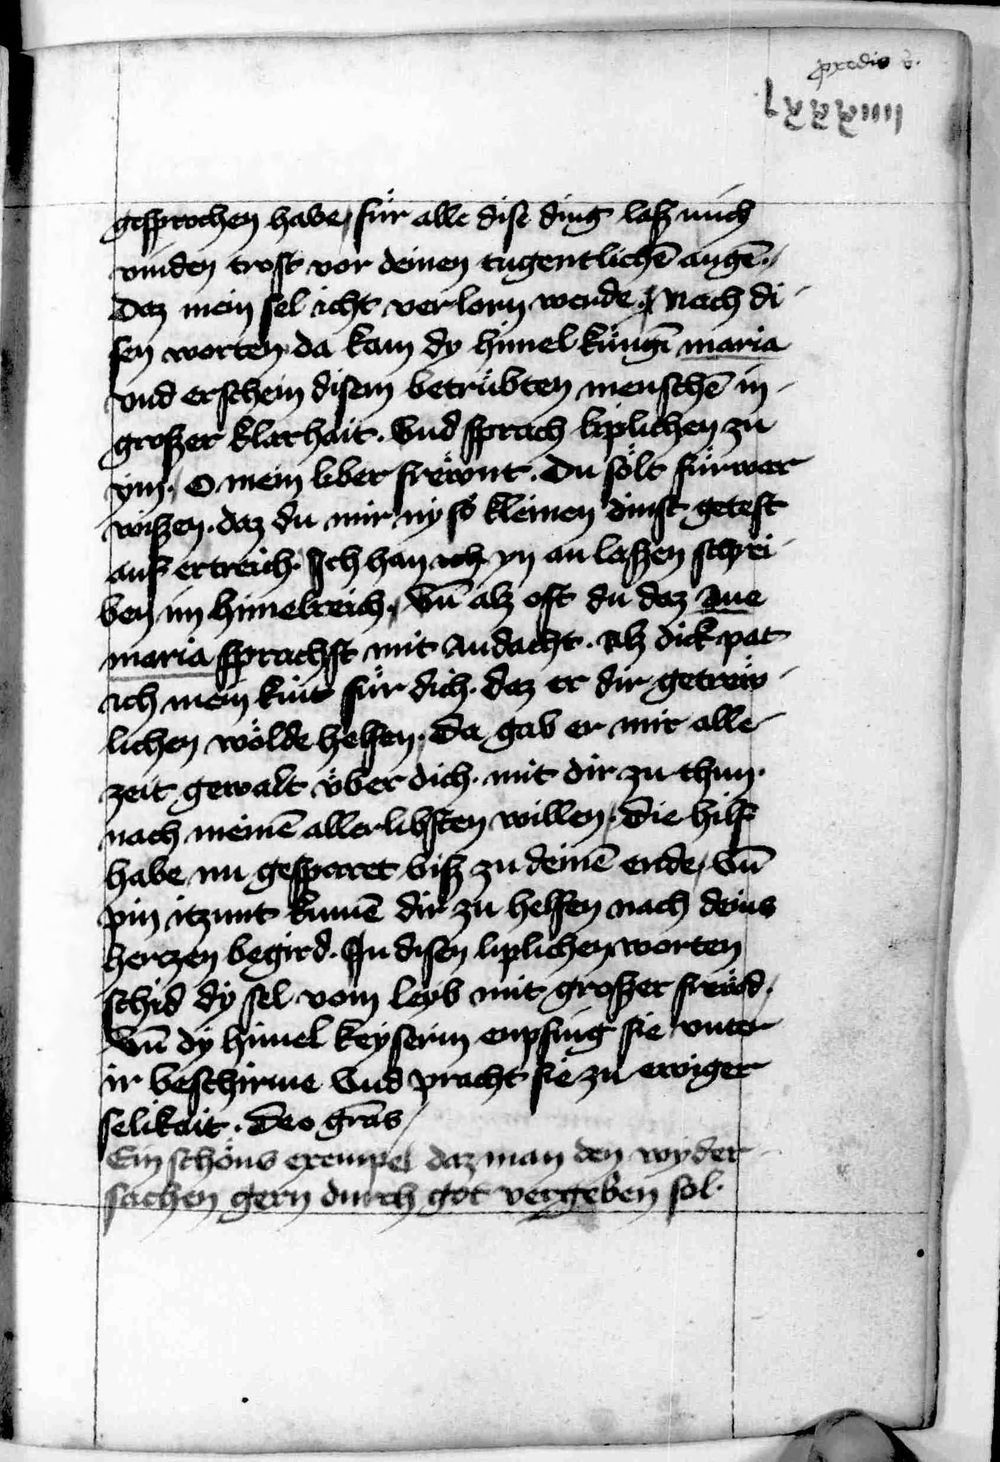 lxxxiiii
gesprochen habe, für alle dise ding laß mich
vinden trost vor deinen tugentlichē augē.
Daz mein sel icht verlorn werde. Nach di
sen worten da kam dy himel küngī maria
vnd erschein disem betrübten menschē in
großer klarhait. Vnd sprach liplichen zu
ym. O mein liber frewnt. Du sölt fürwar
wißen. daz du mir ny so kleinen dinst getest
auf ertreich. Ich han yn an laßen schrei
ben im himelreich. Vn̄ alz oft du daz Aue
maria sprachst mit Andacht. Alz dick pat
ich mein kint für dich. daz er dir getrew
lichen wölde helfen. Da gab er mir alle
zeit gewalt über dich. mit dir zu thun.
nach meinē allerlibsten willen. Die hilf
habe nu gesparet biß zu deinē ende, Vn̄
pin itzunt kumē dir zu helfen nach deins
herczen begird. In disen liplichen worten
schid dy sel vom leyb mit großer frewd.
Vn̄ dy himel keyserin enpfing sie vnter
ir beschirme Vnd pracht sie zu ewiger
selikait. Deo grās
Ein schöns exempel daz man den wyder
sachen gern durch got vergeben sol.